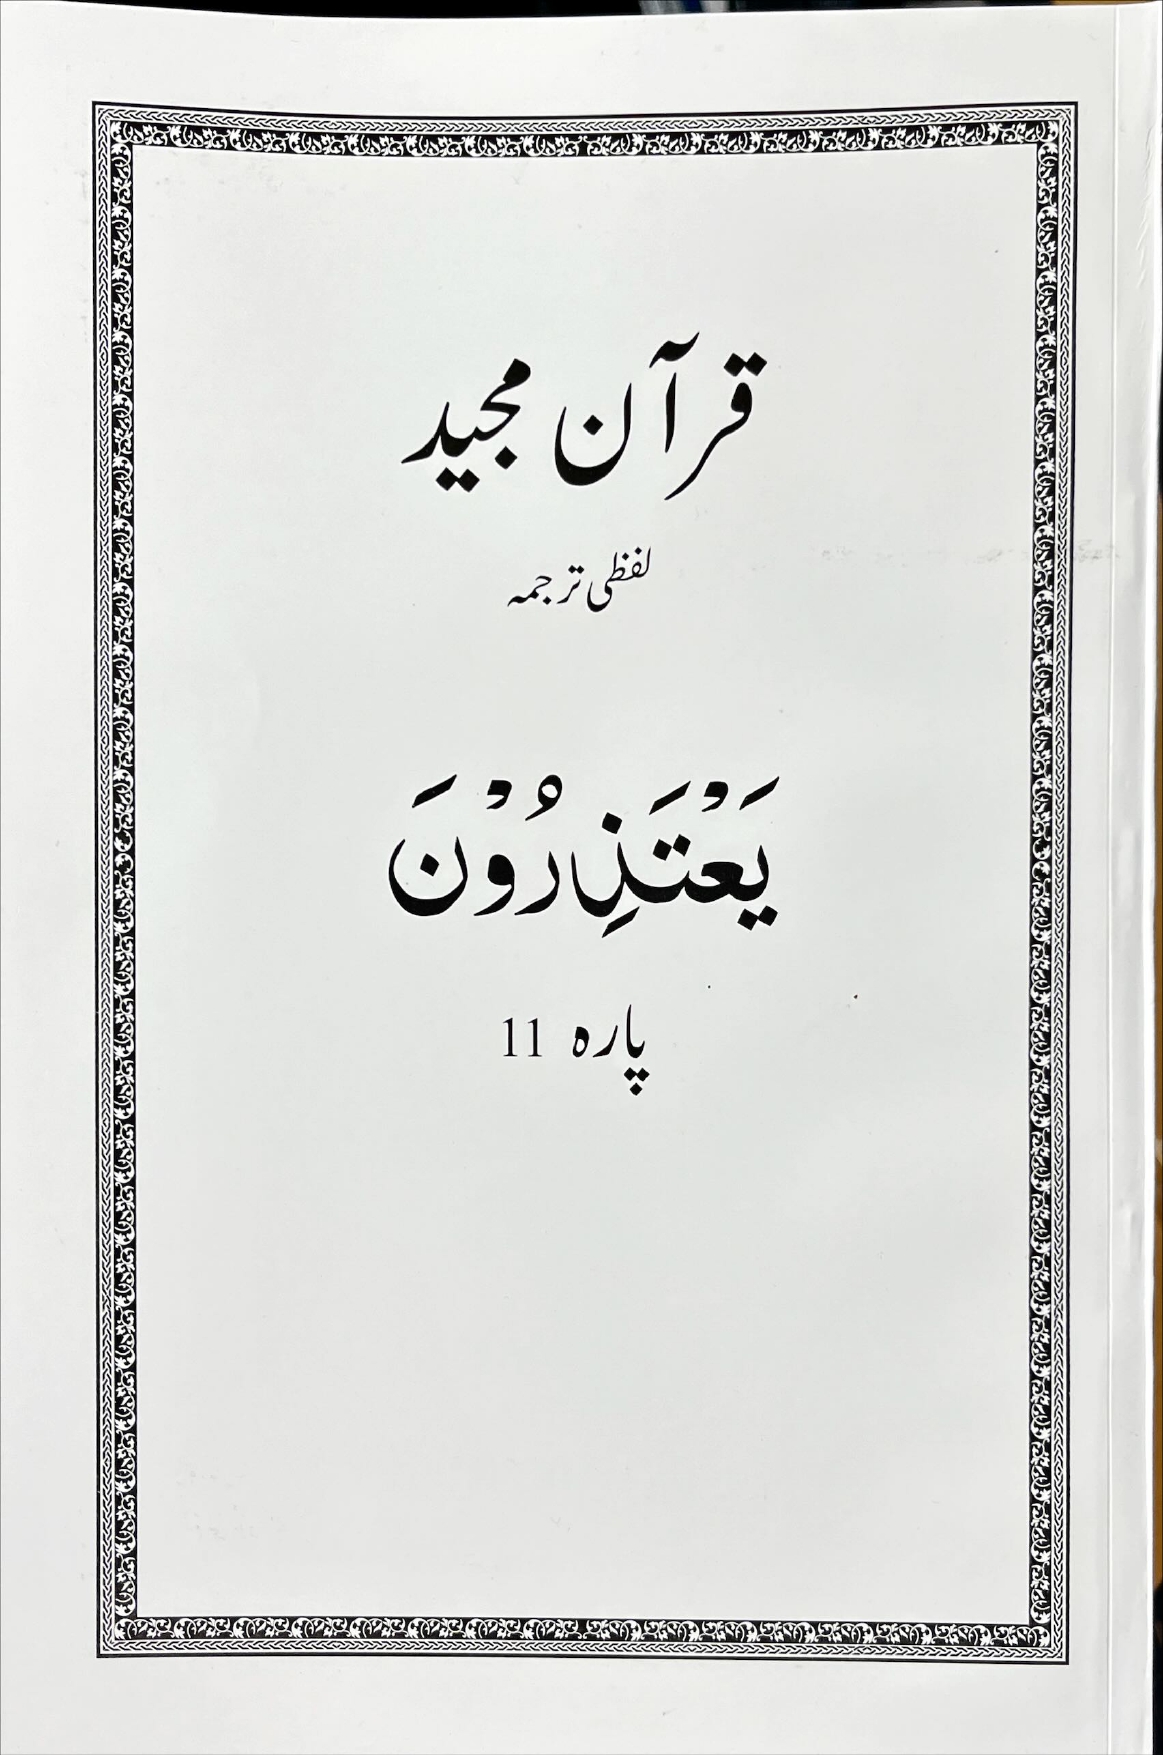 قرآن مجید
لفظی ترجمہ
يَعْتَذِرُوْنَ
پارہ 11